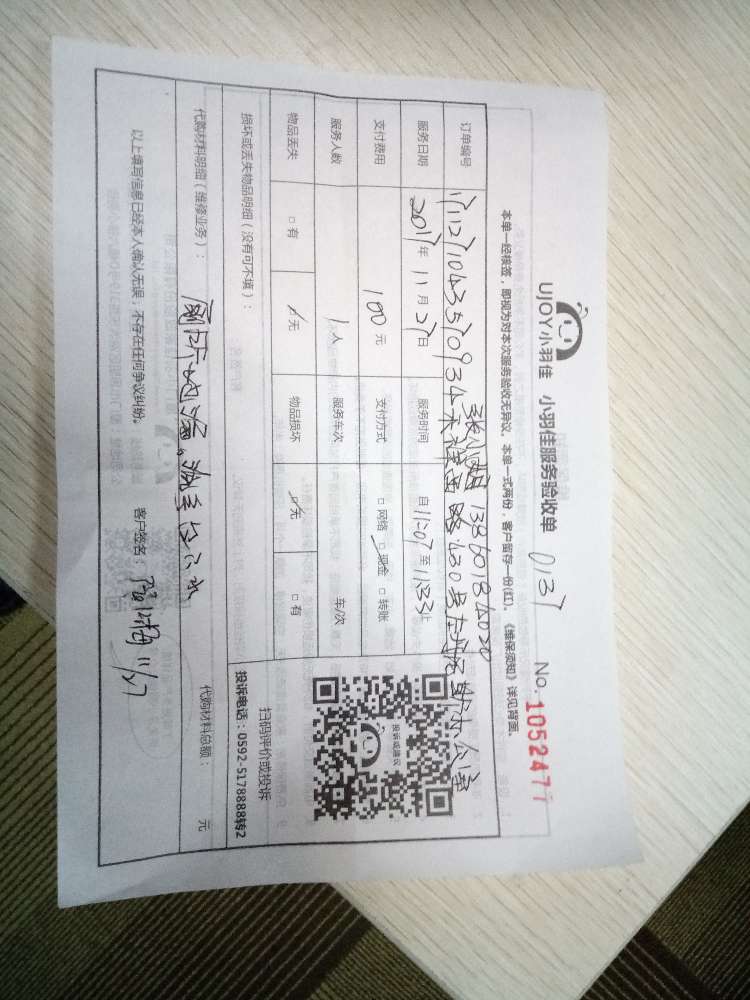 UJOY小羽佳 小羽佳服务验收单 0137 No. 1052477
本单一经核签，即视为对本次服务验收无异议。本单一式两份，客户留存一份(红)。《维保须知》详见背面。
张 13860184020
订单编号
服务日期 2017年 11月 27日 服务时间 自11:07至11:33止
支付费用 100 元 支付方式 □网络 ☑现金 □转账
服务人数 1人 服务车次 车/次
物品丢失 □有 ☑无 物品损坏 ☑无 □有
投诉或建议
扫码评价或投诉
投诉电话：0592-5178888转2
损坏或丢失物品明细（没有可不填）：
代购材料明细（维修业务）： 代购材料总额： 元
以上填写信息已经本人确认无误，不存在任何争议纠纷。 客户签名： 11/27